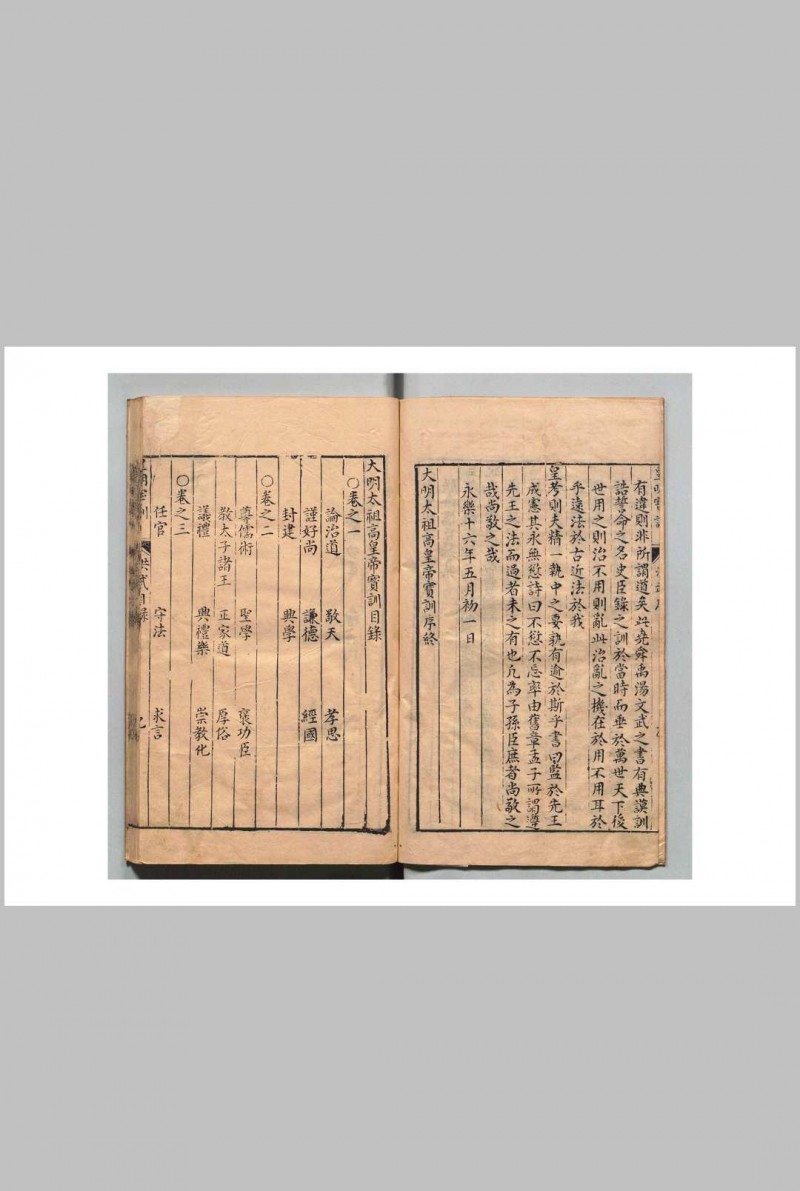 有違則非所謂道矣此堯舜禹湯文武之書有典謨訓
誥誓命之名史臣錄之訓於當時而垂於萬世天下後
世用之則治不用則亂此治亂之機在於用不用耳於
乎遠法於古近法於我
皇考則夫精一執中之要孰有逾於斯乎書曰監於先王
成憲其永無愆詩曰不愆不忘率由舊章孟子所謂遵
先王之法而過者未之有也凡為子孫臣庶者尚敬之
哉尚敬之哉
永樂十六年五月初一日
大明太祖高皇帝寶訓序終
大明太祖高皇帝寶訓目錄
○卷之一
論治道 敬天 孝思
謹好尚 謙德 經國
封建 興學
○卷之二
尊儒術 聖學 褒功臣
教太子諸王 正家道 厚俗
議禮 興禮樂 崇教化
○卷之三
任官 守法 求言
洪武目錄